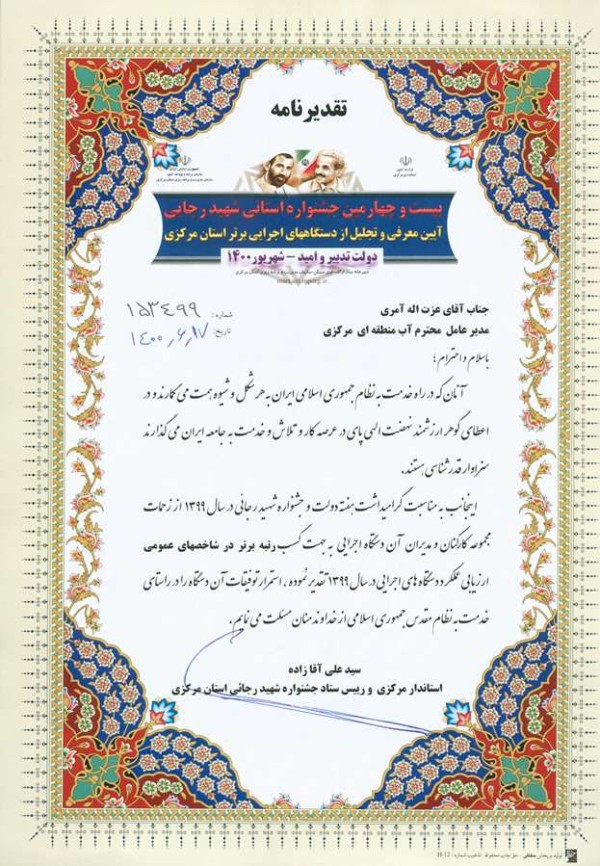 تقدیرنامه
بیست و چهارمین جشنواره استانی شهید رجائی
آیین معرفی و تجلیل از دستگاههای اجرایی برتر استان مرکزی
دولت تدبیر و امید - شهریور ۱۴۰۰
شماره: ۱۵۳۴۹۹
تاریخ: ۱۴۰۰٫۶٫۱۷
جناب آقای عزت اله آمری
مدیر عامل محترم آب منطقه ای مرکزی
باسلام و احترام؛
آنان که در راه خدمت به نظام جمهوری اسلامی ایران به هر شکل و شیوه همت می گمارند و در
اعطای گوهر ارزشمند نهضت الهی پای در عرصه کار و تلاش و خدمت به جامعه ایران می گذارند
سزاوار قدرشناسی هستند.
اینجانب به مناسبت گرامیداشت هفته دولت و جشنواره شهید رجائی در سال ۱۳۹۹ از زحمات
مجموعه کارکنان و مدیران آن دستگاه اجرایی به جهت کسب رتبه برتر در شاخصهای عمومی
ارزیابی عملکرد دستگاه های اجرایی در سال ۱۳۹۹ تقدیر نموده، استمرار توفیقات آن دستگاه را در راستای
خدمت به نظام مقدس جمهوری اسلامی از خداوند منان مسئلت می نمایم.
سید علی آقا زاده
استاندار مرکزی و رییس ستاد جشنواره شهید رجائی استان مرکزی